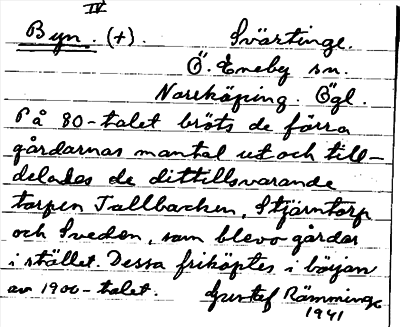 IV
Byn. (+). Svärtinge.
Ö. Eneby sn.
Norrköping. Ögl.
På 80-talet bröts de förra
gårdarnas mantal ut och till-
delades de dittillsvarande
torpen Tallbacken, Stjärntorp
och Sveden, som blevo gårdar
i stället. Dessa friköptes i början
av 1900-talet. Gustef Rämminge
1941